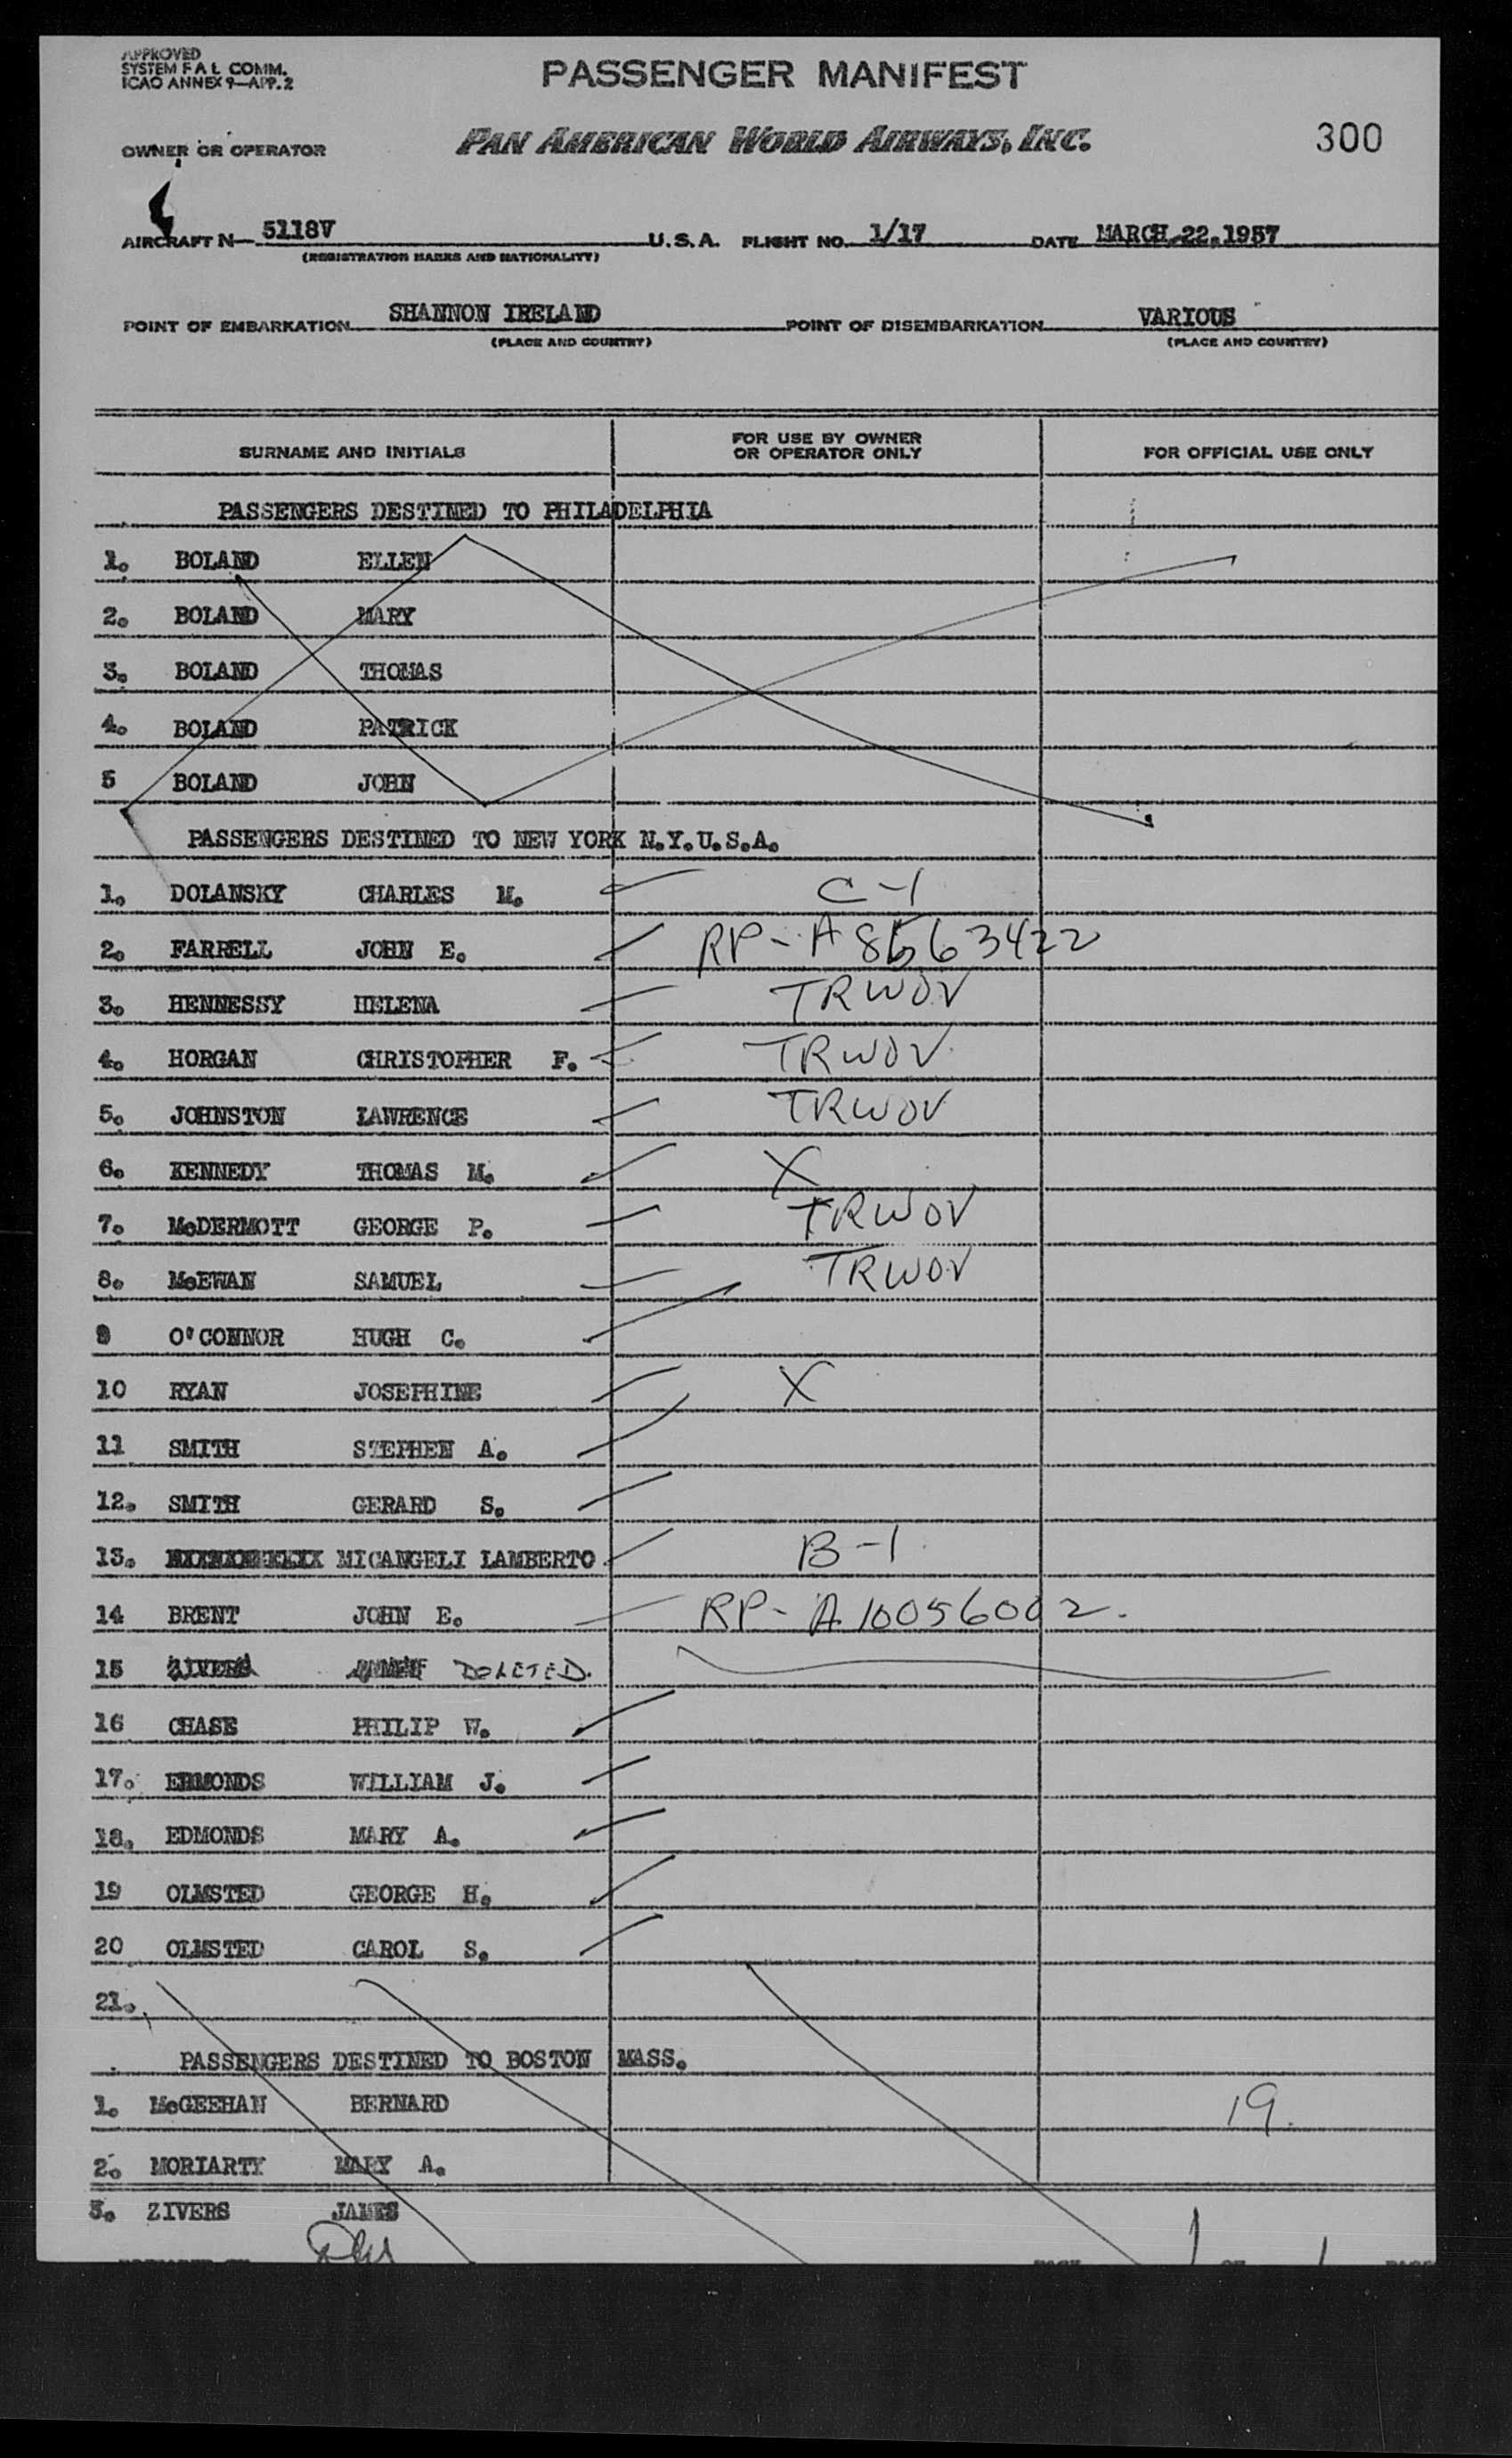 APPROVED
SYSTEM F A L COMM.
ICAO ANNEX 9—APP. 2
PASSENGER MANIFEST
OWNER OR OPERATOR PAN AMERICAN WORLD AIRWAYS, INC. 300
AIRCRAFT N— 5118V U.S.A. FLIGHT NO. 1/17 DATE MARCH 22, 1957
(REGISTRATION MARKS AND NATIONALITY)
POINT OF EMBARKATION SHANNON IRELAND POINT OF DISEMBARKATION VARIOUS
(PLACE AND COUNTRY) (PLACE AND COUNTRY)
SURNAME AND INITIALS FOR USE BY OWNER OR OPERATOR ONLY FOR OFFICIAL USE ONLY
PASSENGERS DESTINED TO PHILADELPHIA
1. BOLAND ELLEN
2. BOLAND MARY
3. BOLAND THOMAS
4. BOLAND PATRICK
5 BOLAND JOHN
PASSENGERS DESTINED TO NEW YORK N.Y.U.S.A.
1. DOLANSKY CHARLES M. C-1
2. FARRELL JOHN E. RP-A8563422
3. HENNESSY HELENA TRWOV
4. HORGAN CHRISTOPHER F. TRWOV
5. JOHNSTON LAWRENCE TRWOV
6. KENNEDY THOMAS M. X
7. McDERMOTT GEORGE P. TRWOV
8. McEWAN SAMUEL TRWOV
9 O'CONNOR HUGH C.
10 RYAN JOSEPHINE X
11 SMITH STEPHEN A.
12. SMITH GERARD S.
13. MICANGELI LAMBERTO B-1
14 BRENT JOHN E. RP-A10056002.
15 ZIVERS DELETED.
16 CHASE PHILIP W.
17. EDMONDS WILLIAM J.
18. EDMONDS MARY A.
19 OLMSTED GEORGE H.
20 OLMSTED CAROL S.
21.
PASSENGERS DESTINED TO BOSTON MASS.
1. McGEEHAN BERNARD 19.
2. MORIARTY MARY A.
3. ZIVERS JAMES
1 1